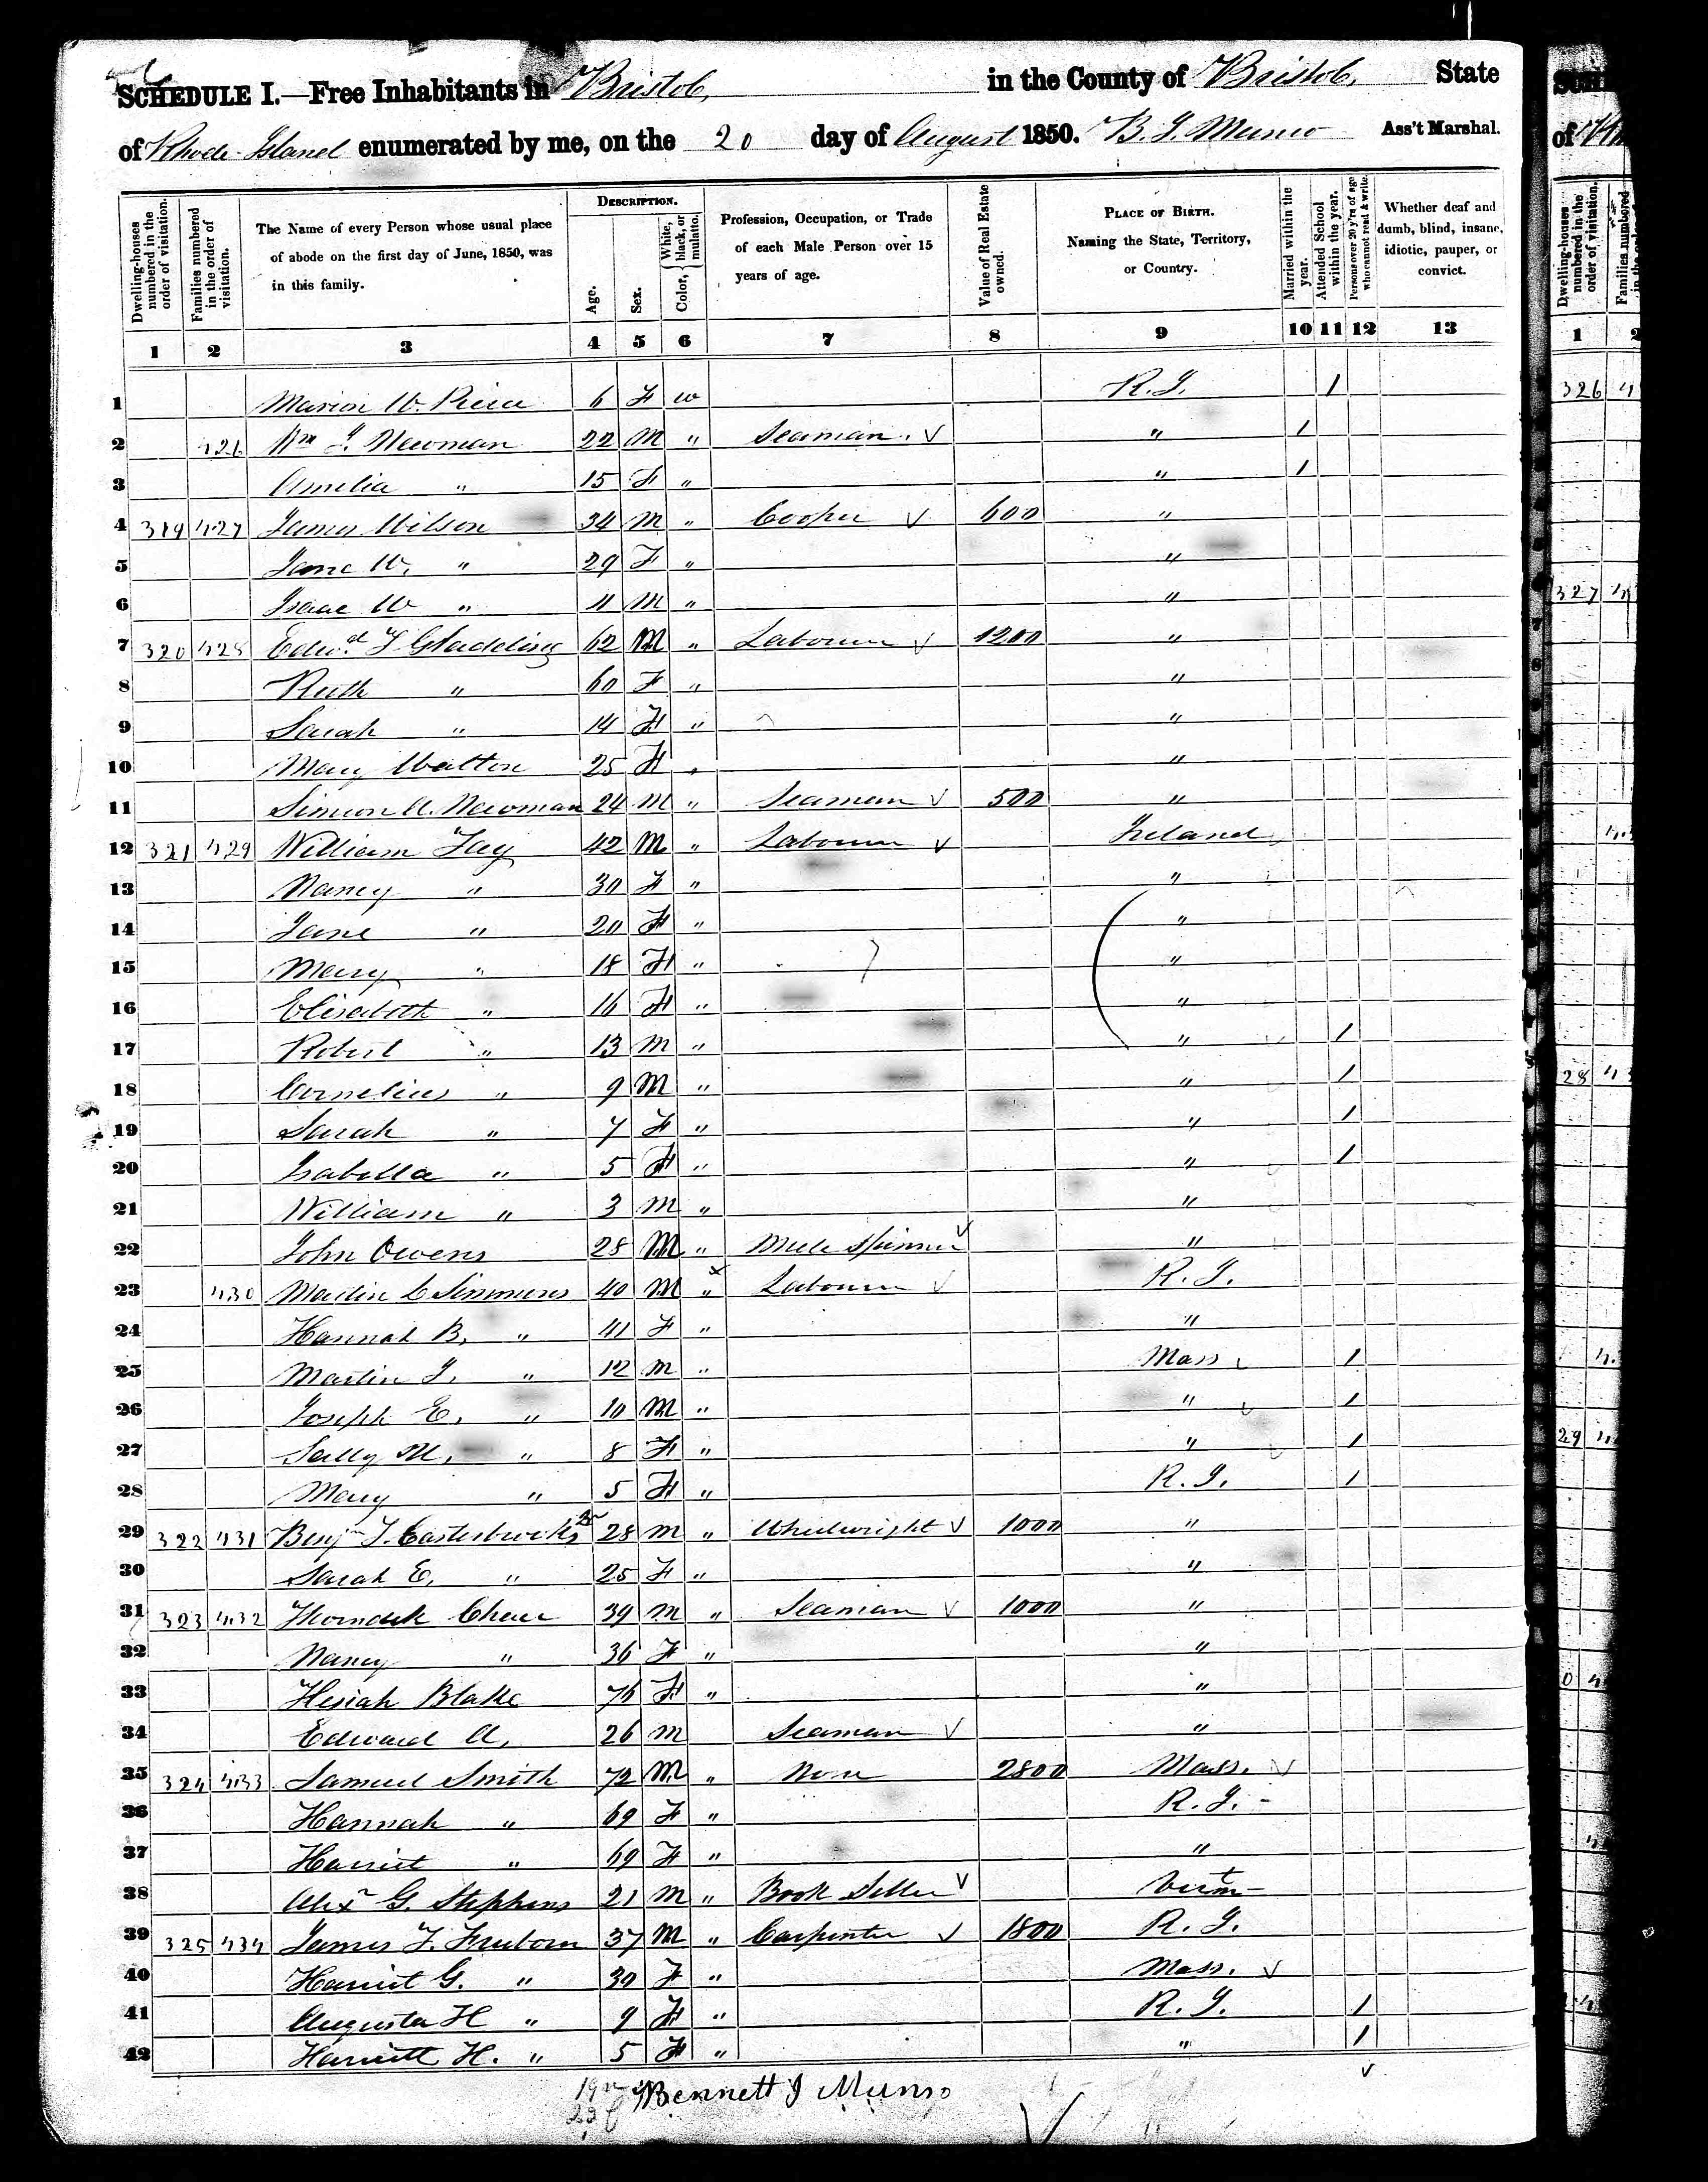 SCHEDULE I.—Free Inhabitants in Bristol, in the County of Bristol, State
of Rhode Island enumerated by me, on the 20 day of August 1850. B. J. Munro Ass't Marshal.
Dwelling-houses numbered in the order of visitation.
Families numbered in the order of visitation.
The Name of every Person whose usual place of abode on the first day of June, 1850, was in this family.
DESCRIPTION.
Age.
Sex.
Color, { White, black, or mulatto.
Profession, Occupation, or Trade of each Male Person over 15 years of age.
Value of Real Estate owned.
PLACE OF BIRTH. Naming the State, Territory, or Country.
Married within the year.
Attended School within the year.
Persons over 20 y'rs of age who cannot read & write.
Whether deaf and dumb, blind, insane, idiotic, pauper, or convict.
1 2 3 4 5 6 7 8 9 10 11 12 13
1 Marion W. Peirce 6 F w R.I. 1
2 426 Wm J. Newman 22 M " Seaman " 1
3 Amelia " 15 F " " 1
4 319 427 James Wilson 34 M " Cooper 600 "
5 Jane W. " 29 F " "
6 Isaac W " 4 M " "
7 320 428 Edwd T Gladding 62 M " Labourer 1200 "
8 Ruth " 60 F " "
9 Sarah " 14 F " "
10 Mary Walton 25 F " "
11 Simeon A. Newman 24 M " Seaman 500 "
12 321 429 William Fay 42 M " Labourer Ireland
13 Nancy " 30 F " "
14 Jane " 20 F " "
15 Mary " 18 F " "
16 Elisabeth " 16 F " "
17 Robert " 13 M " " 1
18 Cornelius " 9 M " " 1
19 Sarah " 7 F " " 1
20 Isabella " 5 F " " 1
21 William " 3 M " "
22 John Owens 28 M " Mule Spinner "
23 430 Martin L Simmons 40 M " Labourer R.I.
24 Hannah B. " 41 F " "
25 Martin J. " 12 M " Mass 1
26 Joseph E. " 10 M " " 1
27 Sally M. " 8 F " " 1
28 Mary " 5 F " R.I. 1
29 322 431 Benjn T. Easterbrooks 28 M " Wheelwright 1000 "
30 Sarah E. " 25 F " "
31 323 432 Thorndick Chase 39 M " Seaman 1000 "
32 Nancy " 36 F " "
33 Hesiah Blake 76 F " "
34 Edward A. 26 M Seaman "
35 324 433 Samuel Smith 72 M " None 2800 Mass.
36 Hannah " 69 F " R.I.
37 Harriet " 69 F " "
38 Alexr G. Stephens 21 M " Book Seller Vermt
39 325 434 James F. Freeborn 37 M " Carpenter 1800 R.I.
40 Harriet G. " 30 F " Mass.
41 Augusta H " 9 F " R.I. 1
42 Harriett H. " 5 F " " 1
Bennett J Munro